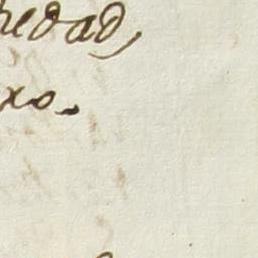 hedad,
xo.